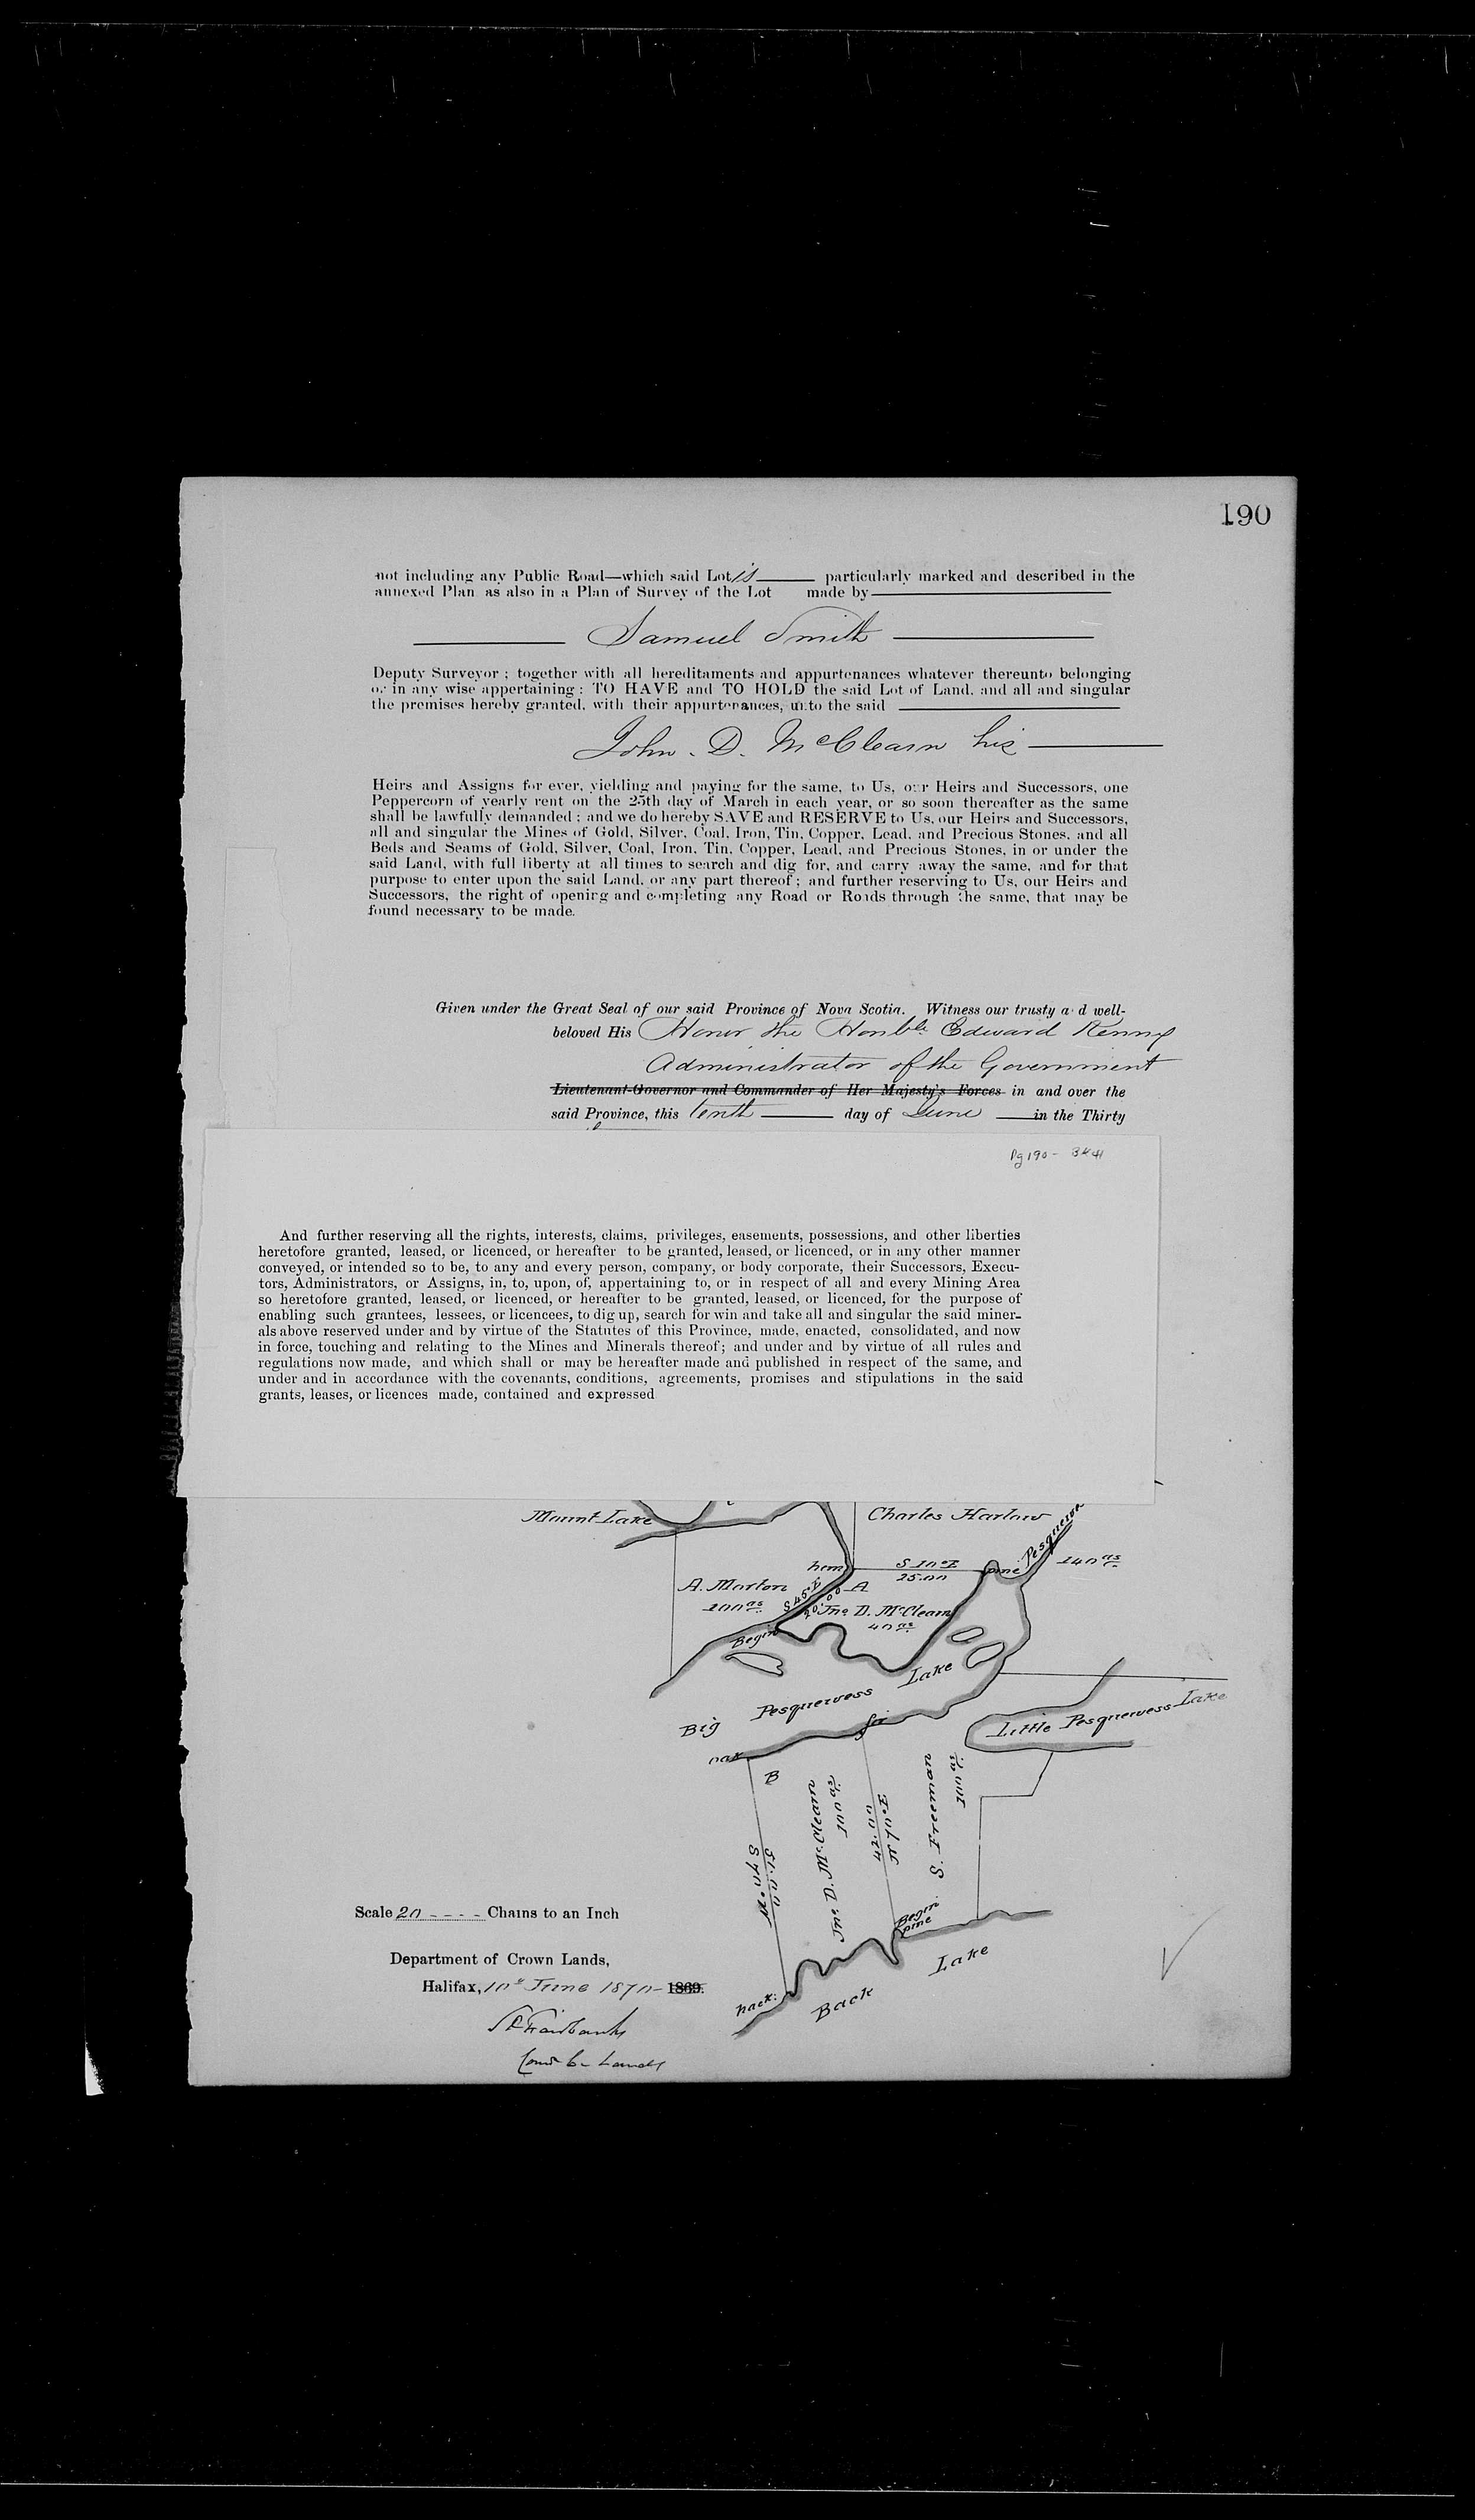 190
not including any Public Road—which said Lot is particularly marked and described in the
annexed Plan as also in a Plan of Survey of the Lot made by
Samuel Smith
Deputy Surveyor ; together with all hereditaments and appurtenances whatever thereunto belonging
or in any wise appertaining : TO HAVE and TO HOLD the said Lot of Land, and all and singular
the premises hereby granted, with their appurtenances, unto the said
John. D. McClearn his
Heirs and Assigns for ever, yielding and paying for the same, to Us, our Heirs and Successors, one
Peppercorn of yearly rent on the 25th day of March in each year, or so soon thereafter as the same
shall be lawfully demanded ; and we do hereby SAVE and RESERVE to Us, our Heirs and Successors,
all and singular the Mines of Gold, Silver, Coal, Iron, Tin, Copper, Lead, and Precious Stones, and all
Beds and Seams of Gold, Silver, Coal, Iron, Tin, Copper, Lead, and Precious Stones, in or under the
said Land, with full liberty at all times to search and dig for, and carry away the same, and for that
purpose to enter upon the said Land, or any part thereof ; and further reserving to Us, our Heirs and
Successors, the right of opening and completing any Road or Roads through the same, that may be
found necessary to be made.
Given under the Great Seal of our said Province of Nova Scotia. Witness our trusty a d well-
beloved His Honor the Honble Edward Kenny
Administrator of the Government
Lieutenant-Governor and Commander of Her Majesty's Forces in and over the
said Province, this tenth day of June in the Thirty
Pg 190 -
And further reserving all the rights, interests, claims, privileges, easements, possessions, and other liberties
heretofore granted, leased, or licenced, or hereafter to be granted, leased, or licenced, or in any other manner
conveyed, or intended so to be, to any and every person, company, or body corporate, their Successors, Execu-
tors, Administrators, or Assigns, in, to, upon, of, appertaining to, or in respect of all and every Mining Area
so heretofore granted, leased, or licenced, or hereafter to be granted, leased, or licenced, for the purpose of
enabling such grantees, lessees, or licencees, to dig up, search for win and take all and singular the said miner-
als above reserved under and by virtue of the Statutes of this Province, made, enacted, consolidated, and now
in force, touching and relating to the Mines and Minerals thereof; and under and by virtue of all rules and
regulations now made, and which shall or may be hereafter made and published in respect of the same, and
under and in accordance with the covenants, conditions, agreements, promises and stipulations in the said
grants, leases, or licences made, contained and expressed
Mount Lake
Charles Harlow
140 as
Pesquewess
hem
S 10° E
25.00
pine
A. Morton
100 as
S 45° W
20.00
A
Jno D. McClearn
40 as
Begin
Big Pesquewess Lake
Little Pesquewess Lake
fir
oak
B
S 70° W
51.00
Jno. D. McClearn
100 as
42.00
N 70° E
S. Freeman
100 as
Begin
pine
hack:
Back Lake
Scale 20 Chains to an Inch
Department of Crown Lands,
Halifax, 10th June 1870 - 1869.
Fairbanks
Lands